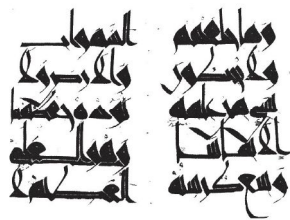 وما خلفهم
ولا يحيطون
بشي من علمه
الا بما شا
وسع كرسيه
السموات
والارض ولا
يوده حفظهما
وهو العلي
العظيم